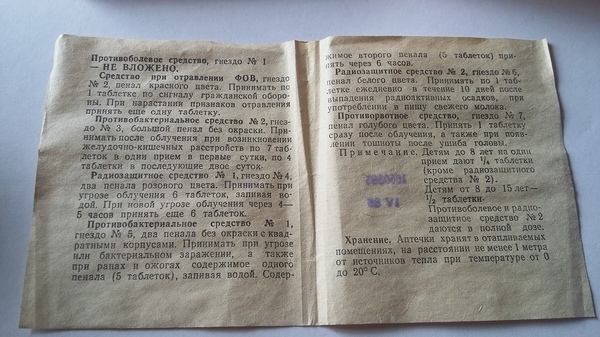 Противоболевое средство, гнездо № 1
— НЕ ВЛОЖЕНО.
Средство при отравлении ФОВ, гнездо
№ 2, пенал красного цвета. Принимать по
1 таблетке по сигналу гражданской оборо-
ны. При нарастании признаков отравления
принять еще одну таблетку.
Противобактериальное средство № 2, гнез-
до № 3, большой пенал без окраски. При-
нимать после облучения при возникновении
желудочно-кишечных расстройств по 7 таб-
леток в один прием в первые сутки, по 4
таблетки в последующие двое суток.
Радиозащитное средство № 1, гнездо № 4,
два пенала розового цвета. Принимать при
угрозе облучения 6 таблеток, запивая во-
дой. При новой угрозе облучения через 4—
5 часов принять еще 6 таблеток.
Противобактериальное средство № 1,
гнездо № 5, два пенала без окраски с квад-
ратными корпусами. Принимать при угрозе
или бактериальном заражении, а также
при ранах и ожогах содержимое одного
пенала (5 таблеток), запивая водой. Содер-
жимое второго пенала (5 таблеток) при-
нять через 6 часов.
Радиозащитное средство № 2, гнездо № 6,
пенал белого цвета. Принимать по 1 таб-
летке ежедневно в течение 10 дней после
выпадения радиоактивных осадков, при
употреблении в пищу свежего молока.
Противорвотное средство, гнездо № 7,
пенал голубого цвета. Принять 1 таблетку
сразу после облучения, а также при появ-
лении тошноты после ушиба головы.
Примечание. Детям до 8 лет на один
прием дают ¼ таблетки
(кроме радиозащитного
средства № 2).
Детям от 8 до 15 лет—
½ таблетки.
Противоболевое и радио-
защитное средство № 2
даются в полной дозе.
Хранение. Аптечки хранят в отапливаемых
помещениях, на расстоянии не менее 1 метра
от источников тепла при температуре от 0
до 20° С.